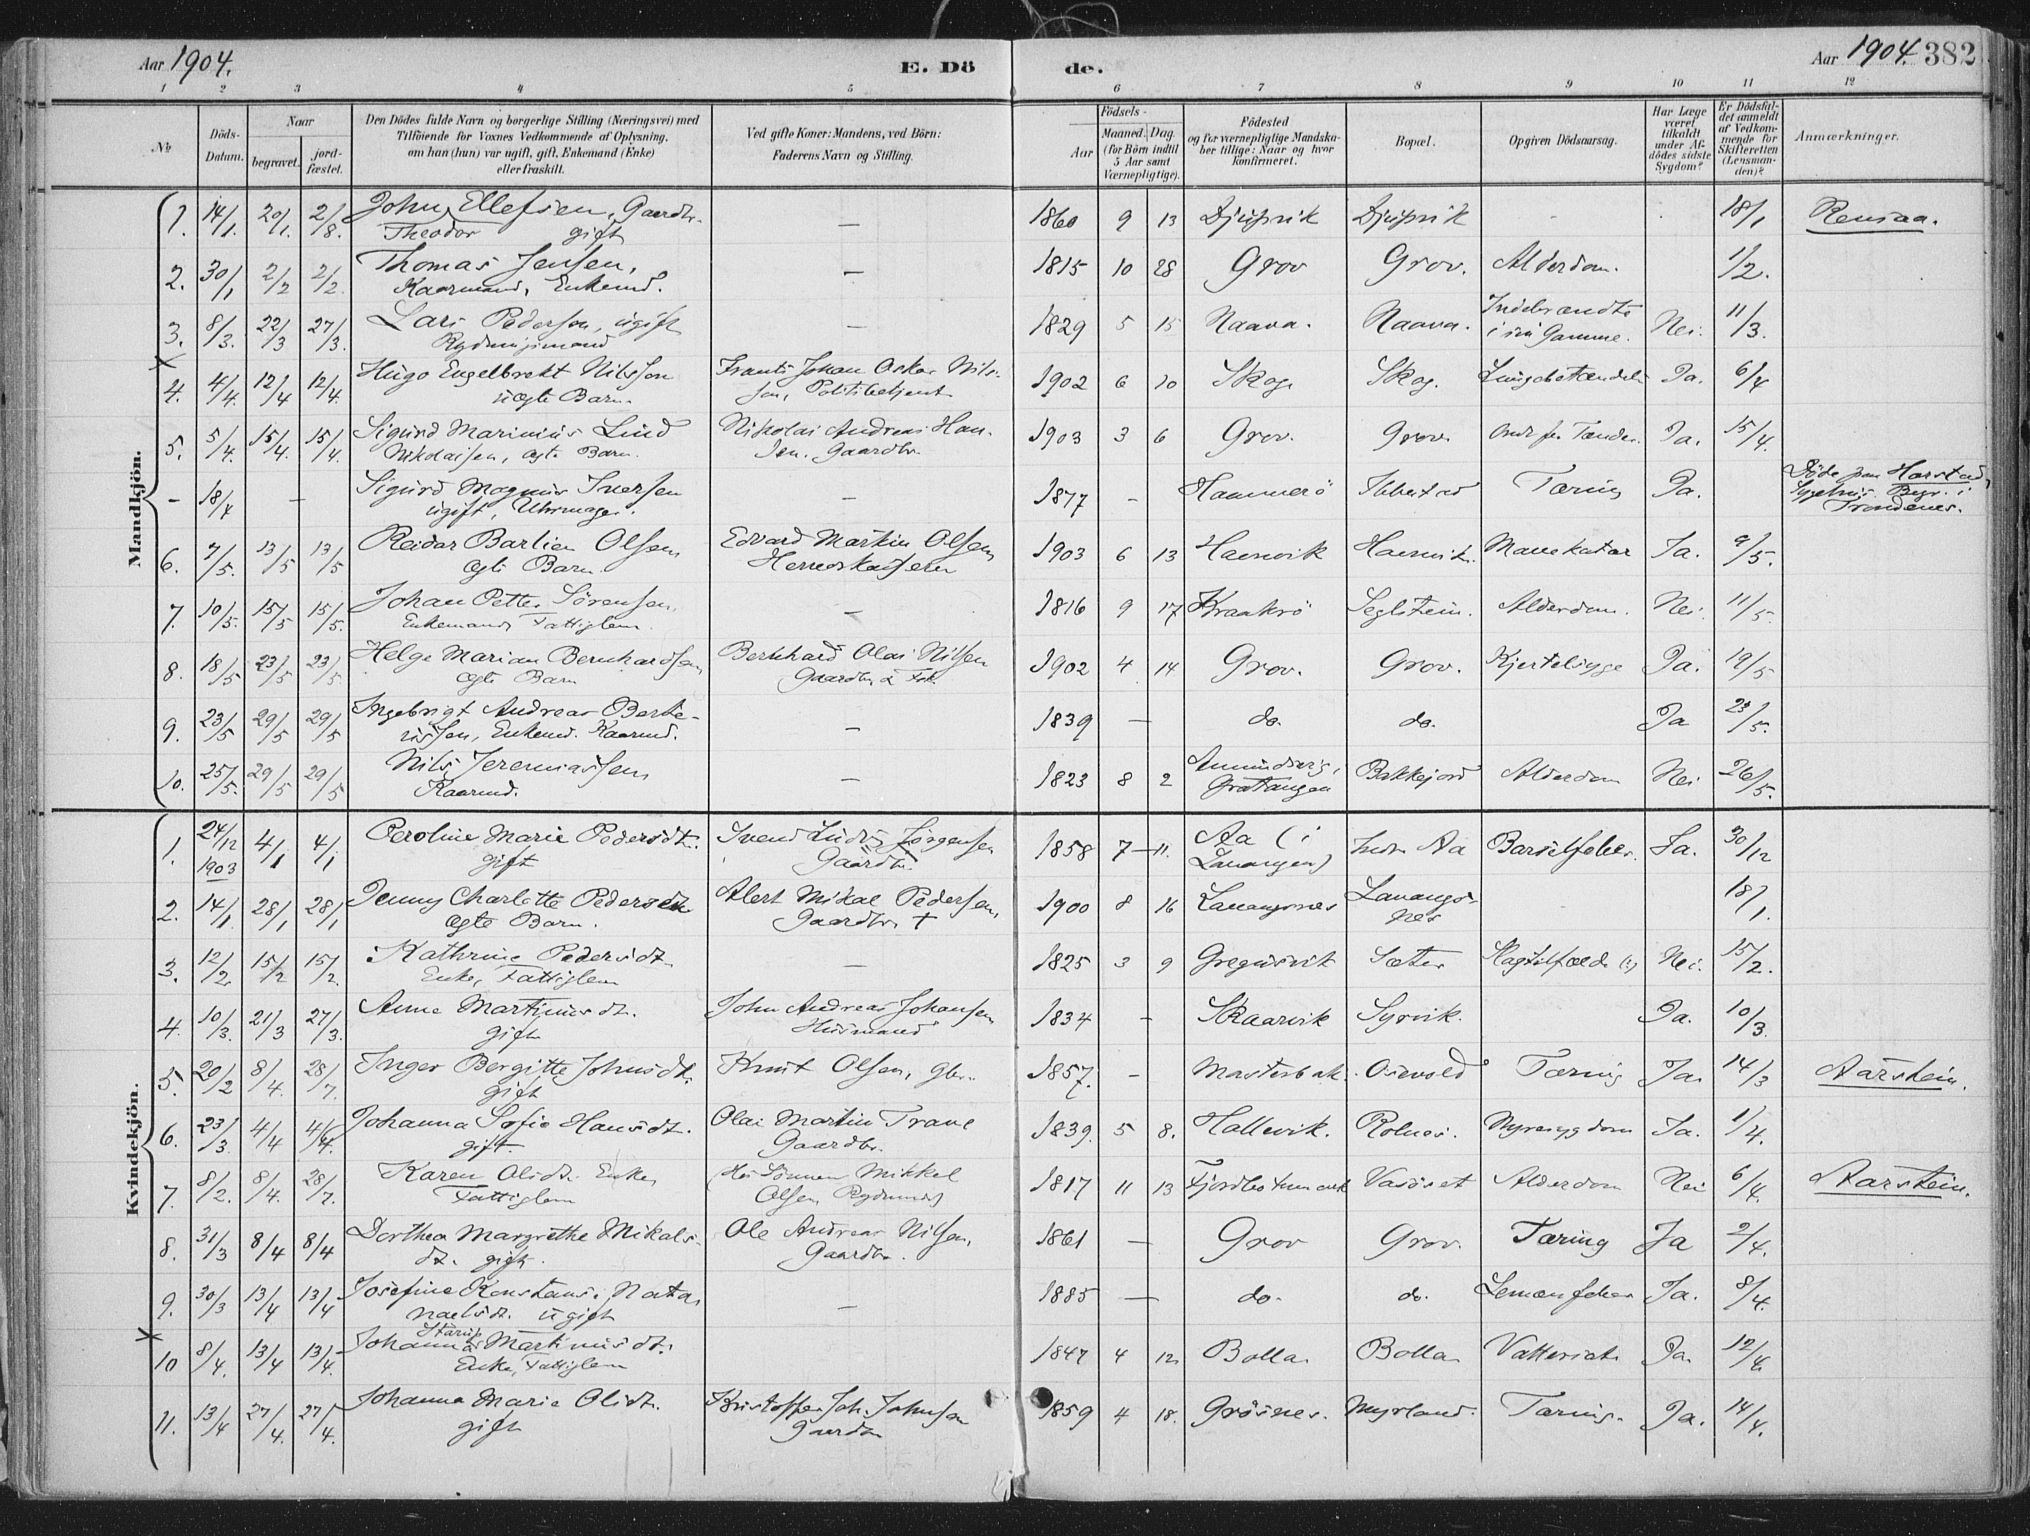 Aar 1904. E. Dö de. Aar 1904. 382
1 2 3 4 5 6 7 8 9 10 11 12
№
Döds-Datum.
Naar
begravet.
jord-fæstet.
Den Dödes fulde Navn og borgerlige Stilling (Næringsvei) med
Tilföiende for Voxnes Vedkommende af Oplysning,
om han (hun) var ugift, gift, Enkemand (Enke)
eller fraskilt.
Ved gifte Koner: Mandens, ved Börn:
Faderens Navn og Stilling.
Födsels-
Aar
Maaned. Dag
(for Börn indtil
5 Aar samt
Værnepligtige).
Födested
og for værnepligtige Mandska-
ber tillige: Naar og hvor
konfirmeret.
Bopæl.
Opgiven Dödsaarsag.
Har Læge
været
tilkaldt
under Af-
dödes sidste
Sygdom?
Er Dödsfal-
det anmeldt
af Vedkom-
mende for
Skifteretten
(Lensman-
den)?
Anmærkninger.
Mandkjön.
1. 14/1. 20/1. 2/8. John Ellefsen, Gaardbr. — 1860 9 13 Djupvik Djupvik - . 18/1 Rensaa.
Theodor gift
2. 30/1 2/2 2/2. Thomas Jensen, — 1815 10 28 Grov Grov. Alderdom. 1/2.
Kaarmand, Enkemd.
3. 8/3. 22/3 27/3. Lars Pedersen, ugift — 1829 5 15 Naava. Naava. Indebrændte Nei. 11/3.
Rydningsmand i sin Gamme.
4. 4/4. 12/4 12/4. Hugo Engelbrekt Nilsson Frants Johan Oskar Nils- 1902 6 10 Skog Skog. Lungebetændelse Ja. 6/4
uægte Barn. son, Politibetjent
5. 5/4. 15/4. 15/4. Sigurd Marinius Lind Nikolai Andreas Han- 1903 3 6 Grov. Grov. Ondt for Tænder. Ja. 15/4.
Nikolaisen, ægte Barn. sen. Gaardbr.
- 18/4 — Sigurd Magnus Iversen — 1877 - Hammerö Ibbestad Tæring Ja. Döde paa Harstad
ugift, Uhrmager. Sygehus. Begr. i
Trondenes.
6. 7/5. 13/5 13/5 Reidar Barlien Olsen Edvard Martin Olsen 1903 6 13 Havnvik Havnvik. Mavekatar Ja. 9/5.
ægte Barn.
7. 10/5. 15/5 15/5. Johan Petter Sörensen, — 1816 9 17 Kraakrö Seglstein. Alderdom. Nei. 11/5.
Enkemand, Fattiglem.
8. 18/5 23/5 23/5 Helge Marian Bernhardsen Bernhard Olai Nilsen 1902 4 14 Grov. Grov. Kjertelsyge Ja. 19/5
ægte Barn
9. 23/5 29/5 29/5 Ingebrigt Andreas Berte- — 1839 — do. do. Ja 23/5.
ussen, Enkemd. Kaarmd.
10. 25/5. 29/5 29/5 Nils Jeremiassen — 1823 8 2 Amundberg, Bakkejord Alderdom Nei 26/5.
Kaarmd. Gratangen
Kvindekjön.
1. 24/12 4/1 4/1 Peroline Marie Pedersdt. Svend Ludv. Jørgensen 1858 7 — 11. Aa (i Indr. Aa Barselfeber. Ja. 30/12
1903 gift Gaardbr. Lavangen)
2. 14/1. 28/1 28/1 Jenny Charlotte Pedersen Alert Mikal Pedersen, 1900 8 16 Lavangsnes Lavangs- 18/1.
ægte Barn. Gaardbr. † nes
3. 12/2. 15/2 15/2. Kathrine Pedersdt. — 1825 3 9 Gregusvik Sæter Slagtilfælde (?) Nei. 15/2.
Enke, Fattiglem
4. 10/3. 21/3 27/3. Anne Martinusdt. John Andreas Johansen 1834 - Skaarvik Syrvik. Ja. 10/3.
gift Husmand
5. 20/2 8/4. 28/7. Inger Bergitte Johnsdt. Knut Olsen, gbr. 1857. - Masterbak. Osevold Tæring Ja. 14/3 Aarstein.
gift
6. 23/3 4/4 4/4. Johanna Sofie Hansdt. Olai Martin Trane 1839. 5 8. Hallevik. Rolnes. Nyresygdom Ja. 1/4.
gift. Gaardbr.
7. 8/2. 8/4. 28/7. Karen Olsdt. Enke, (Hos Sønnen Mikkel 1817 11 13 Fjordbotnmark Vasöset Alderdom Nei 6/4. Aarstein.
Fattiglem Olsen, Rydnmd)
8. 31/3 8/4 8/4 Dorthea Margrethe Mikals- Ole Andreas Nilsen, 1861 — Grov Grov. Tæring Ja 2/4.
dt. gift. Gaardbr.
9. 30/3 13/4 13/4 Josefine Konstansi Nata- — 1885 — do. do. Ja. 8/4.
naelsdt. ugift
10 8/4. 13/4 13/4. Johanna Martinusdt. 1847 4 12 Bolla Bolla Vattersot Ja. 12/4.
Enke, Fattiglem
11. 13/4 27/4. 27/4. Johanna Marie Olsdt. Kristoffer Joh. Johnsen 1859 4 18. Grösnes. Myrland. Tæring. Ja. 14/4.
gift Gaardbr